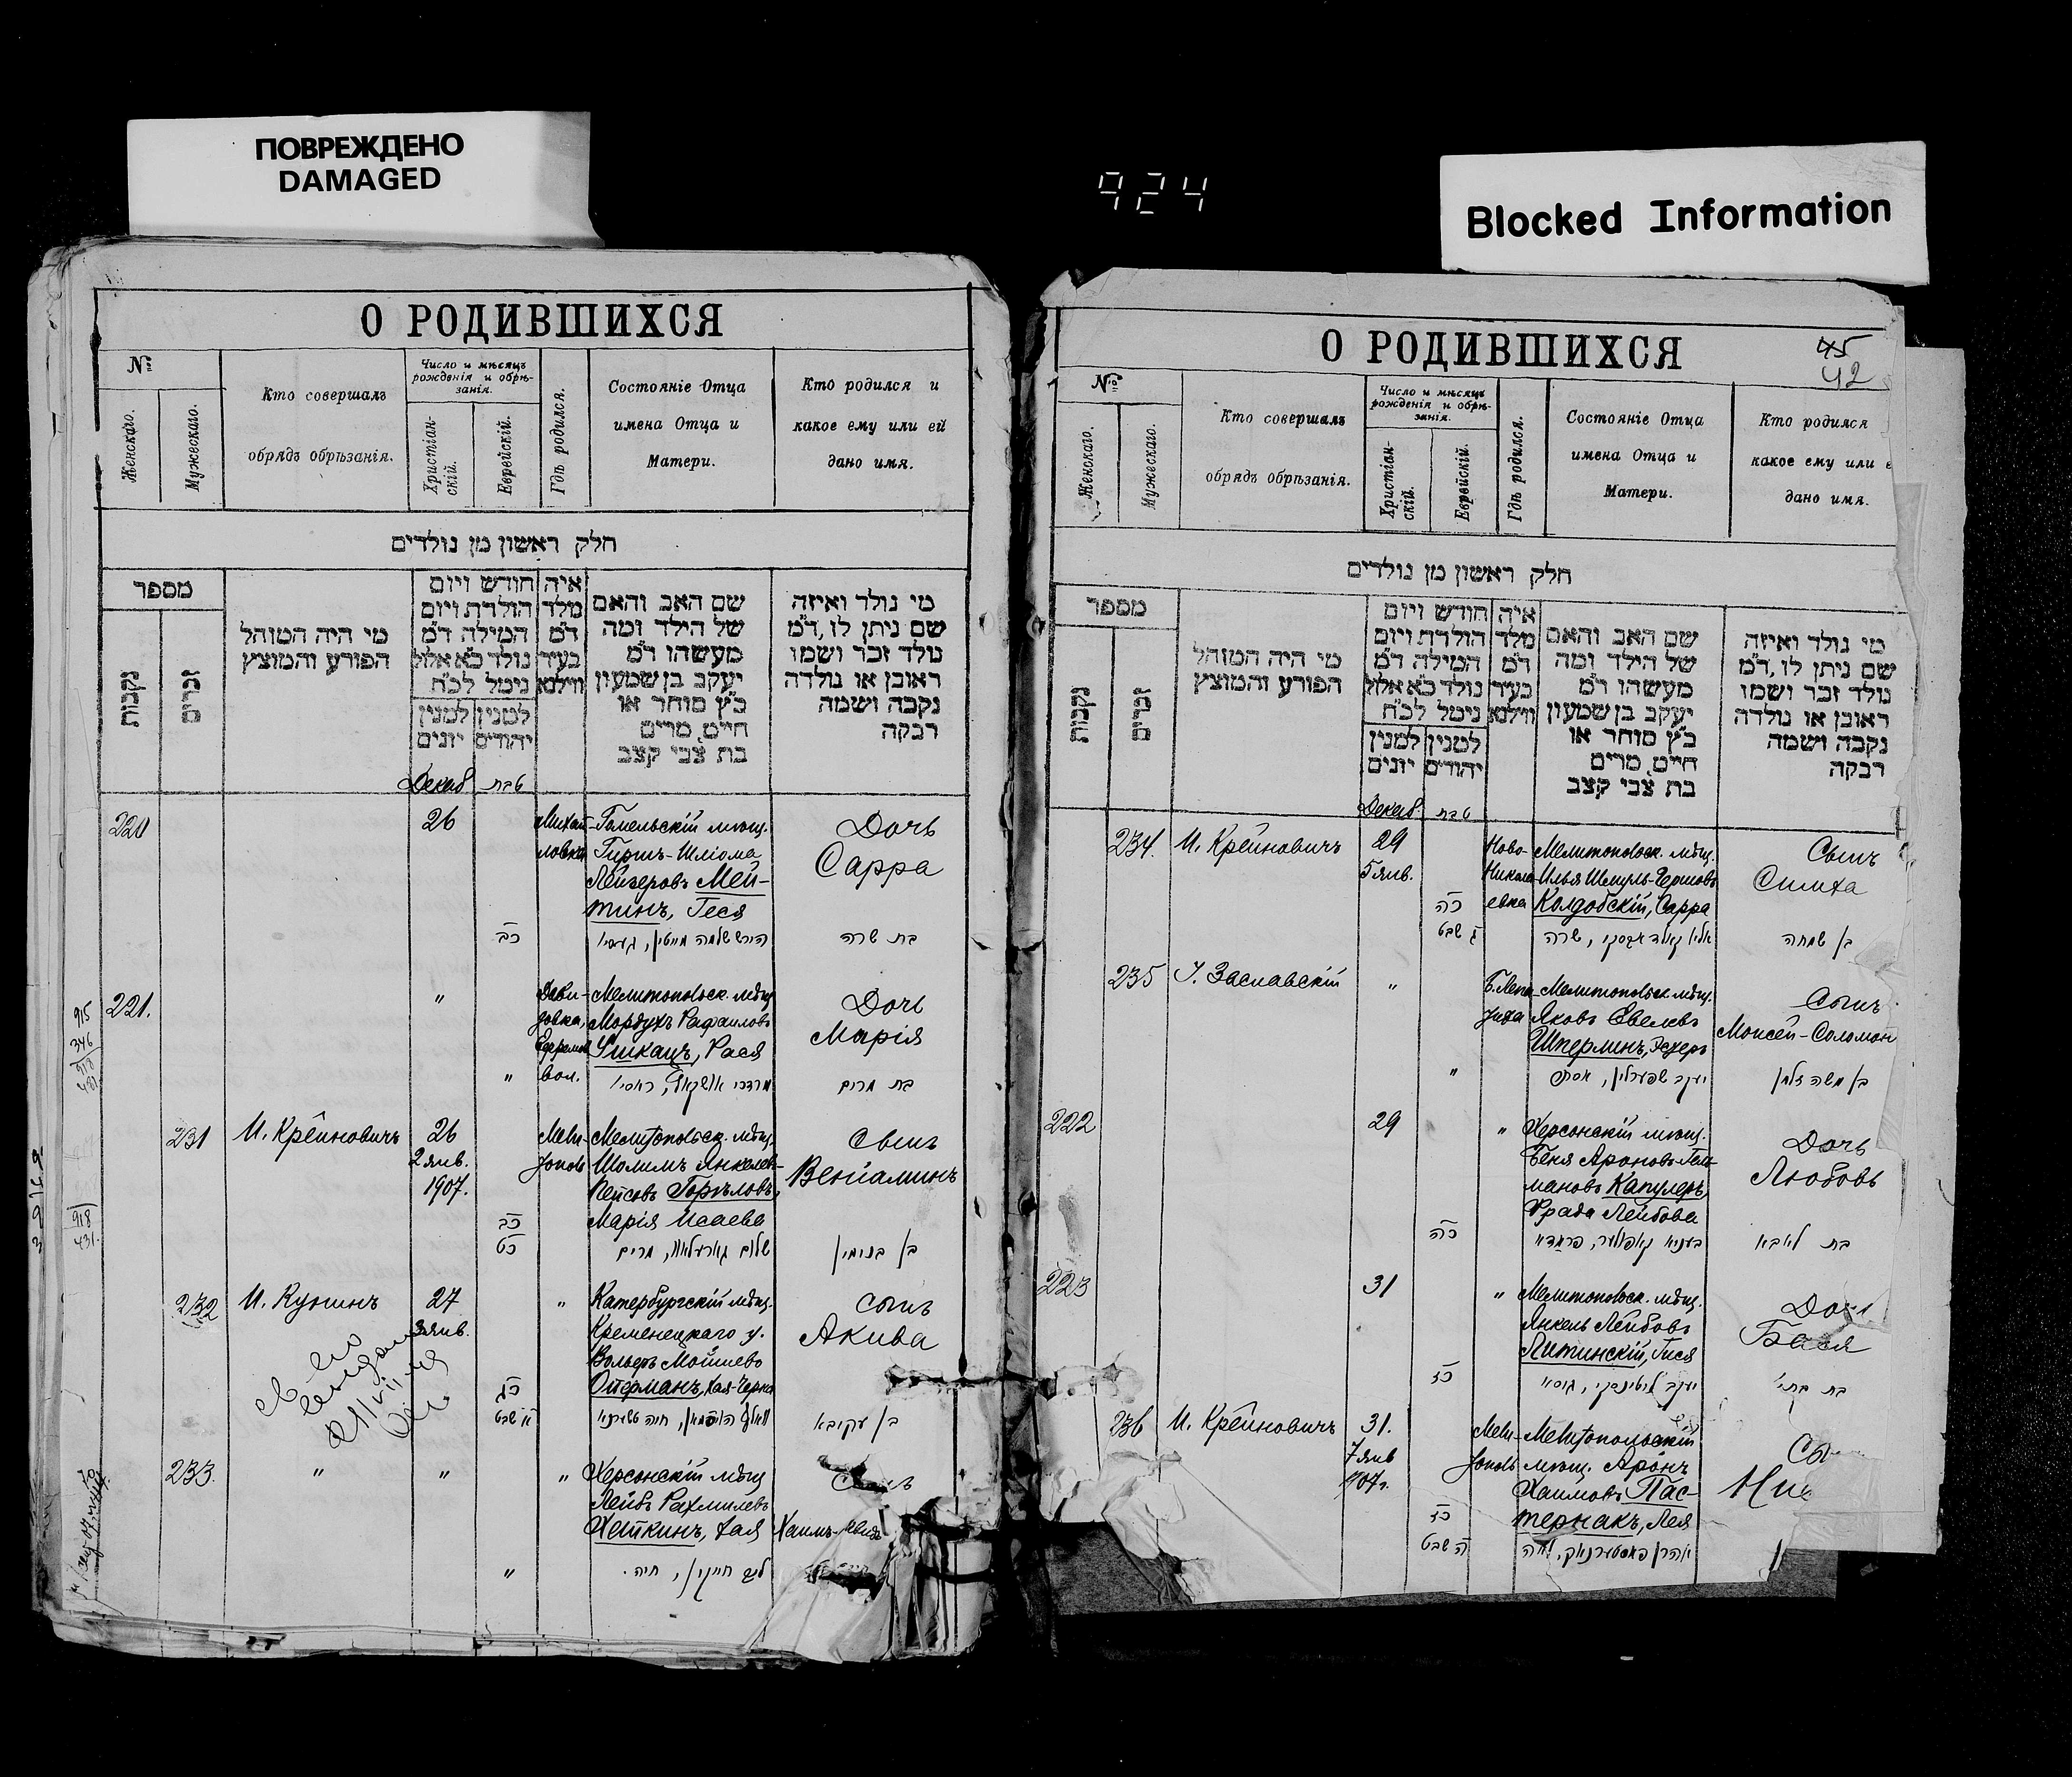 ПОВРЕЖДЕНО
DAMAGED
924
Blocked Information
О РОДИВШИХСЯ
№
Женскаго.
Мужескаго.
Кто совершалъ
обрядъ обрѣзанія.
Число и мѣсяцъ
рожденія и обрѣ-
занія.
Христіан-
скій.
Еврейскій.
Гдѣ родился.
Состояніе Отца
имена Отца и
Матери.
Кто родился и
какое ему или ей
дано имя.
חלק ראשון מן נולדים
מספר
נקבות
זכרים
מי היה המוהל
הפורע והמוצץ
חודש ויום
הולדת ויום
המילה ד״מ
נולד כ״א אלול
ניטל לכ״ח
למנין למנין
יהודים יונים
איה
מלד
ד״מ
בעיר
ווילנא
שם האב והאם
של הילד ומה
מעשהו ד״מ
יעקב בן שמעון
כ״ץ סוחר או
חייט, מרים
בת צבי קצב
מי נולד ואיזה
שם ניתן לו, ד״מ
נולד זכר ושמו
ראובן או נולדה
נקבה ושמה
רבקה
Декаб טבת
220
26
Михай-
ловка
Гомельскій мѣщ.
Гиршъ-Шліома
Лейзеровъ Мей-
тинъ, Геся
Дочь
Сарра
כב
הירש שלמה מייטין, געסיא
בת שרה
221.
"
Дави-
довка,
Ефремов
вол.
Мелитопольск. мѣщ
Мордухъ Рафаиловъ
Ушкацъ, Рася
Дочь
Марія
"
בת מרים
231
И. Крейновичъ
26
2 янв.
1907.
Мели-
тополь
Мелитопольск. мѣщ.
Шолимъ Янкелев-
Пейсовъ Горѣловъ,
Марія Исаева
Сынъ
Веніаминъ
כב
כט
שלום גארעלאוו, מרים
בן בנימין
232
И. Кугинъ
27
3 янв.
"
Катербургскій мѣщ.
Кременецкаго у.
Вольфъ Мошково
Ойерманъ, Хая-Черна
Сынъ
Акива
כג
א שבט
בן עקיבא
233.
"
"
"
Херсонскій мѣщ
Лейбъ Рахмилевъ
Хейкинъ, Хая
"
ליב חייקין, חיה
915
346
918
431.
О РОДИВШИХСЯ
45
42
№
Женскаго.
Мужескаго.
Кто совершалъ
обрядъ обрѣзанія.
Число и мѣсяцъ
рожденія и обрѣ-
занія.
Христіан-
скій.
Еврейскій.
Гдѣ родился.
Состояніе Отца
имена Отца и
Матери.
Кто родился
какое ему или е
дано имя.
חלק ראשון מן נולדים
מספר
נקבות
זכרים
מי היה המוהל
הפורע והמוצץ
חודש ויום
הולדת ויום
המילה ד״מ
נולד כ״א אלול
ניטל לכ״ח
למנין למנין
יהודים יונים
איה
מלד
ד״מ
בעיר
ווילנא
שם האב והאם
של הילד ומה
מעשהו ד״מ
יעקב בן שמעון
כ״ץ סוחר או
חייט, מרים
בת צבי קצב
מי נולד ואיזה
שם ניתן לו, ד״מ
נולד זכר ושמו
ראובן או נולדה
נקבה ושמה
רבקה
Декаб טבת
234.
И. Крейновичъ
29
5 янв.
Ново-
Никола-
евка
Мелитопольск. мѣщ.
Илья Шмуль-Гершовъ
Колдобскій, Сарра
Сынъ
Симха
כה
ג שבט
בן שמחה
235
І. Заславскій
"
Б. Лепа-
тиха
Мелитопольск. мѣщ.
Яковъ Евелевъ
Шперлинъ, Эсѳеръ
Сынъ
Моисей-Соломон
"
יעקב שפערלין, אסתר
בן משה זלמן
222
29
"
Херсонскій мѣщ.
Беня Ароновъ-Гель-
мановъ Капулеръ,
Фрада Лейбова
Дочь
Любовь
כה
בעניא קאפולער, פראדא
בת ליובא
223
31
"
Мелитопольск. мѣщ.
Янкель Лейбовъ
Литинскій, Гися
Дочь
Бася
כז
יעקב ליטינסקי, גיסיא
בת בתי׳
236
И. Крейновичъ
31.
7 янв
907г.
Мели-
тополь
Мелитопольскій
мѣщ. Аронъ
Хаимовъ Пас-
тернакъ, Лея
Сы
כז
ה שבט
אהרן פאסטערנאק, לאה